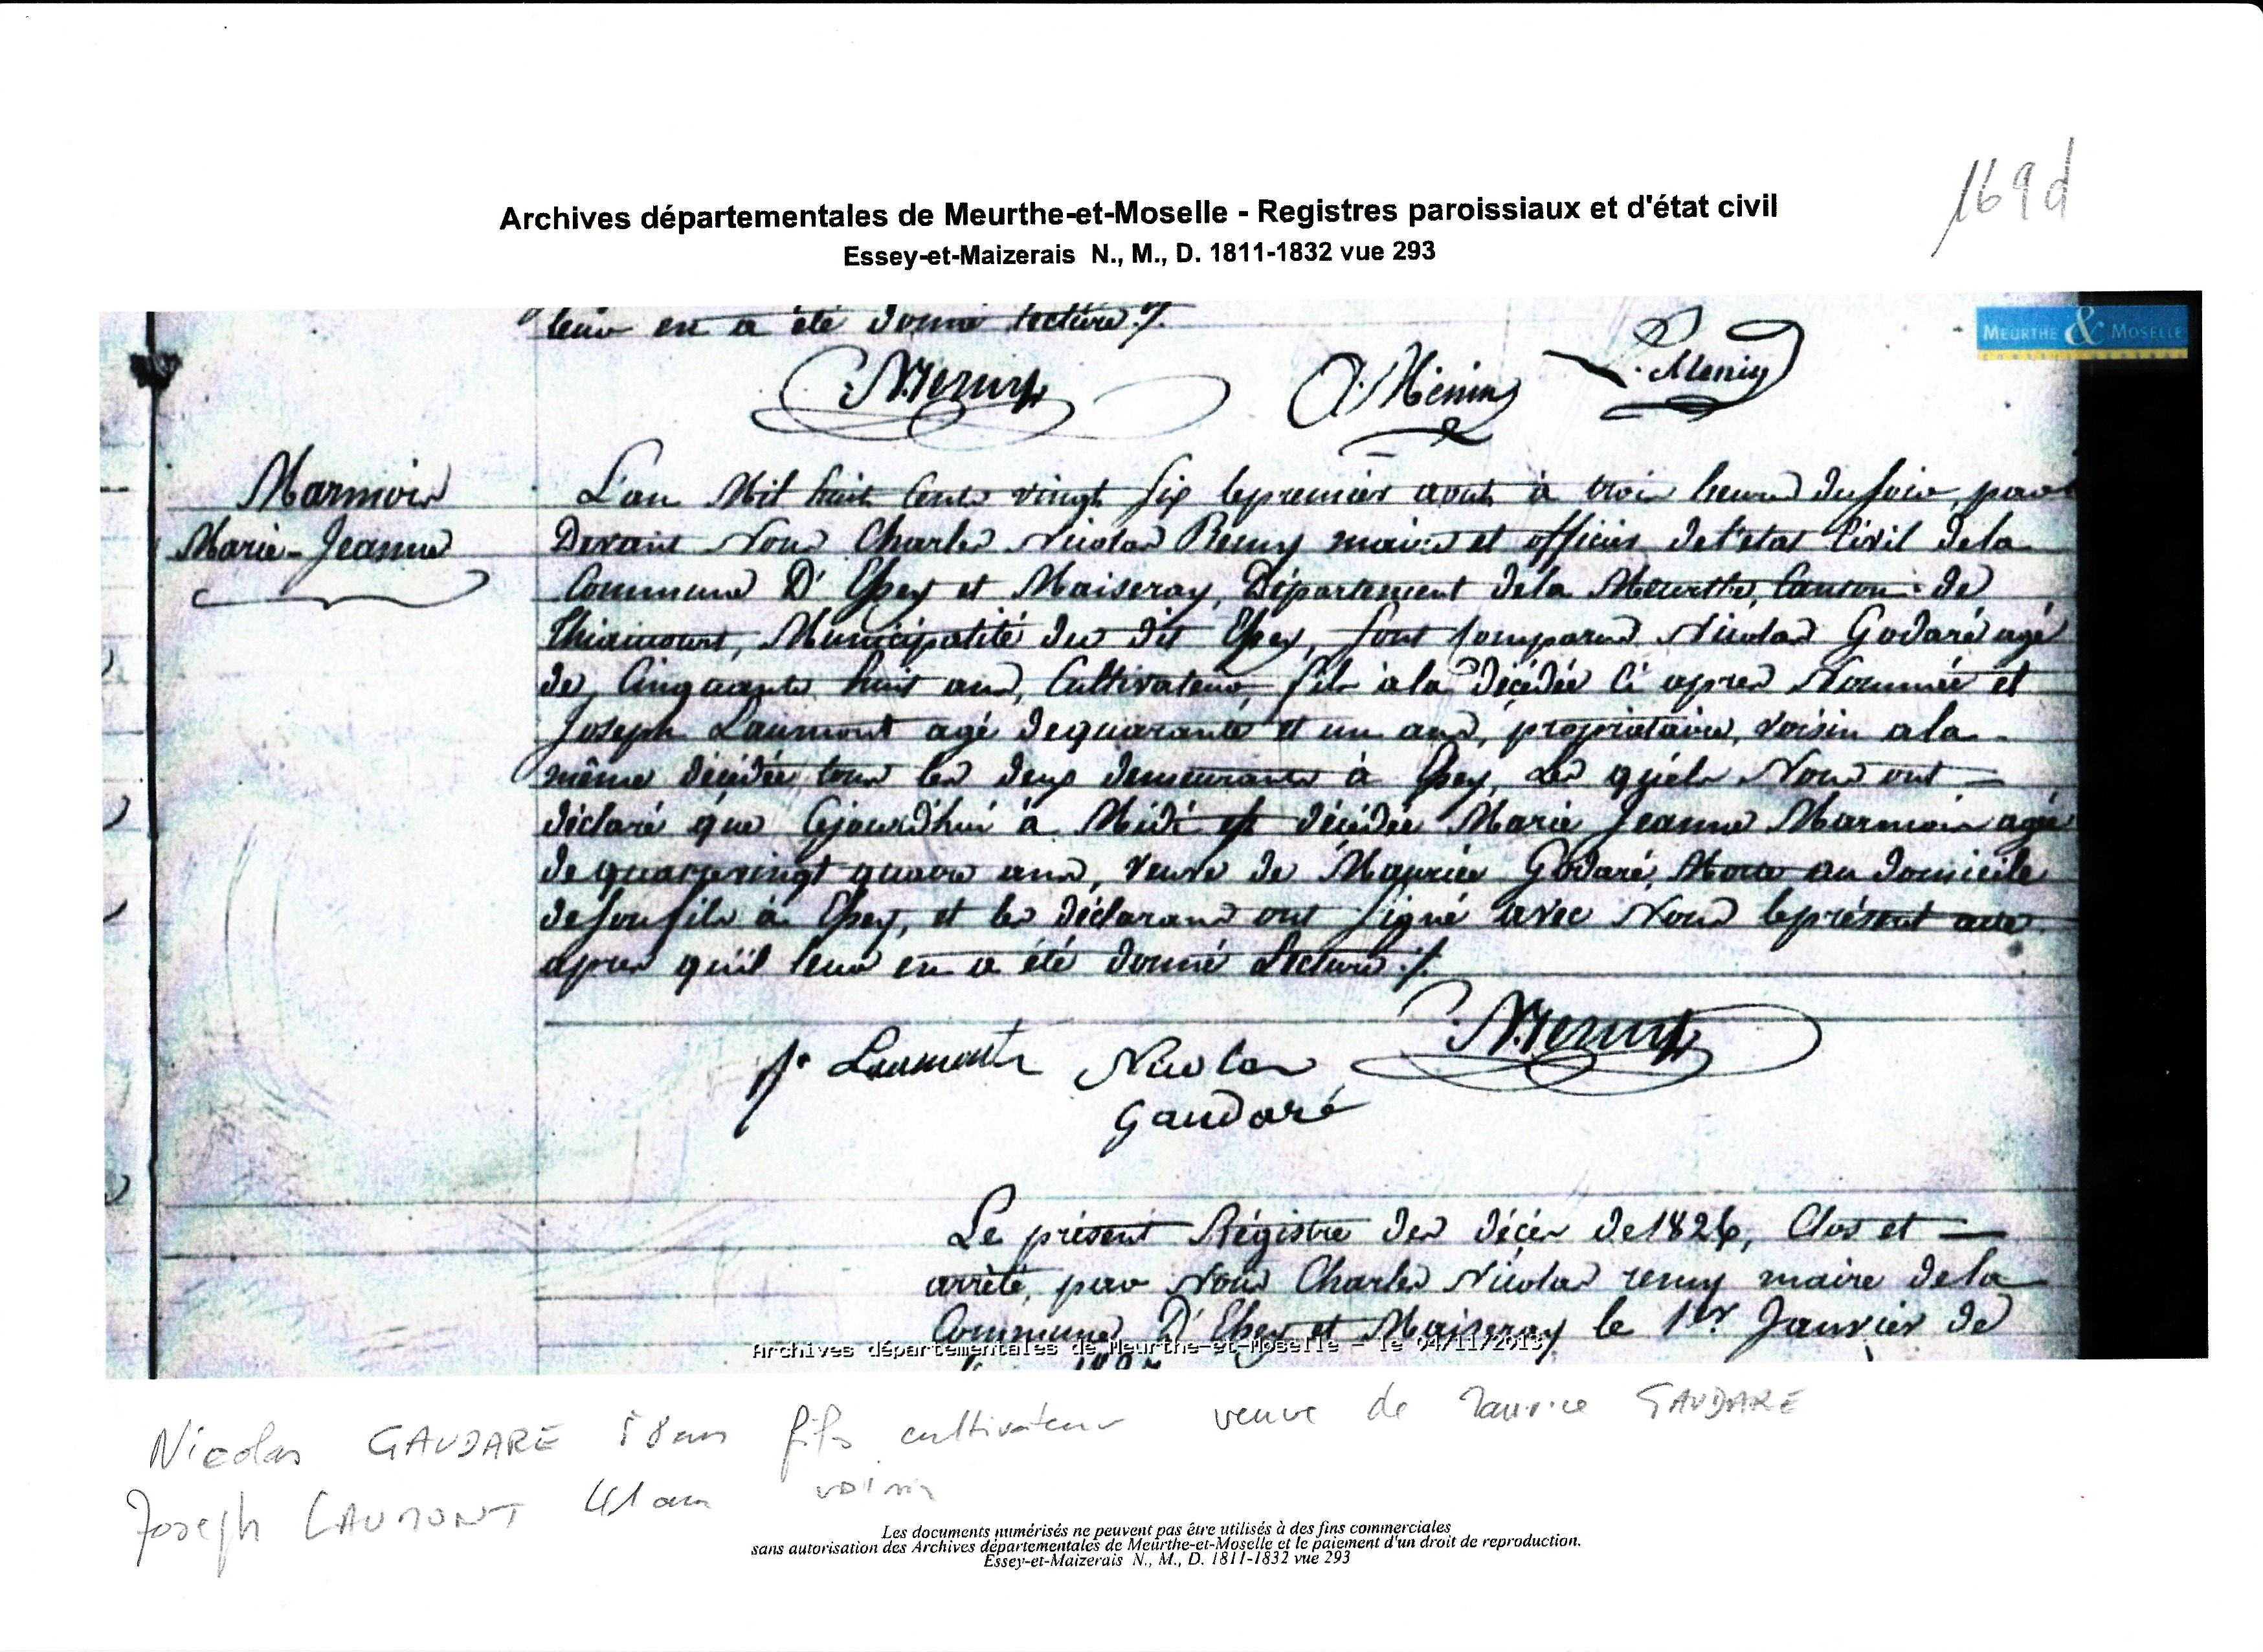 169d
Archives départementales de Meurthe-et-Moselle - Registres paroissiaux et d'état civil
Essey-et-Maizerais N., M., D. 1811-1832 vue 293
leur en a été donné lecture ./.
MEURTHE & MOSELLE
C. N. Remy
Marmoir
Marie-Jeanne
L'an Mil huit Cent vingt six le premier aout à trois heures du soir, par
Devant Nous Charles Nicolas Remy maire et officier de l'état Civil de la
Commune D'Essey et Maiseray, Département de la Meurthe, Canton de
Thiaucourt, Municipalité du dit Essey, sont Comparus Nicolas Godaré agé
de Cinquante huit ans, Cultivateur fils à la décédée Ci apres Nommée et
Joseph Laumont agé de quarante et un ans, propriétaire, voisin a la
même décédée tous les deux demeurants à Essey, Les quiels Nous ont
déclaré que Cejourd'hui à Midi est décédée Marie Jeanne Marmoir agée
de quatrevingt quatre ans, veuve de Maurice Godaré, Morte au domicile
de son fils à Essey, et les déclarans ont signé avec Nous le présent acte
apres qu'il leur en a été donné Lecture ./.
J. Laumont Nicolas C. N. Remy
Gaudaré
Le présent Régistre des décés de 1826, Clos et
arrêté, par Nous Charles Nicolas remy maire de la
Commune D'Essey et Maiseray le 1er Janvier de
Archives départementales de Meurthe-et-Moselle - le 04/11/2013
Nicolas GAUDARE 58 ans fils cultivateur veuve de Maurice GAUDARE
Joseph LAUMONT 41 ans voisin
Les documents numérisés ne peuvent pas être utilisés à des fins commerciales
sans autorisation des Archives départementales de Meurthe-et-Moselle et le paiement d'un droit de reproduction.
Essey-et-Maizerais N., M., D. 1811-1832 vue 293